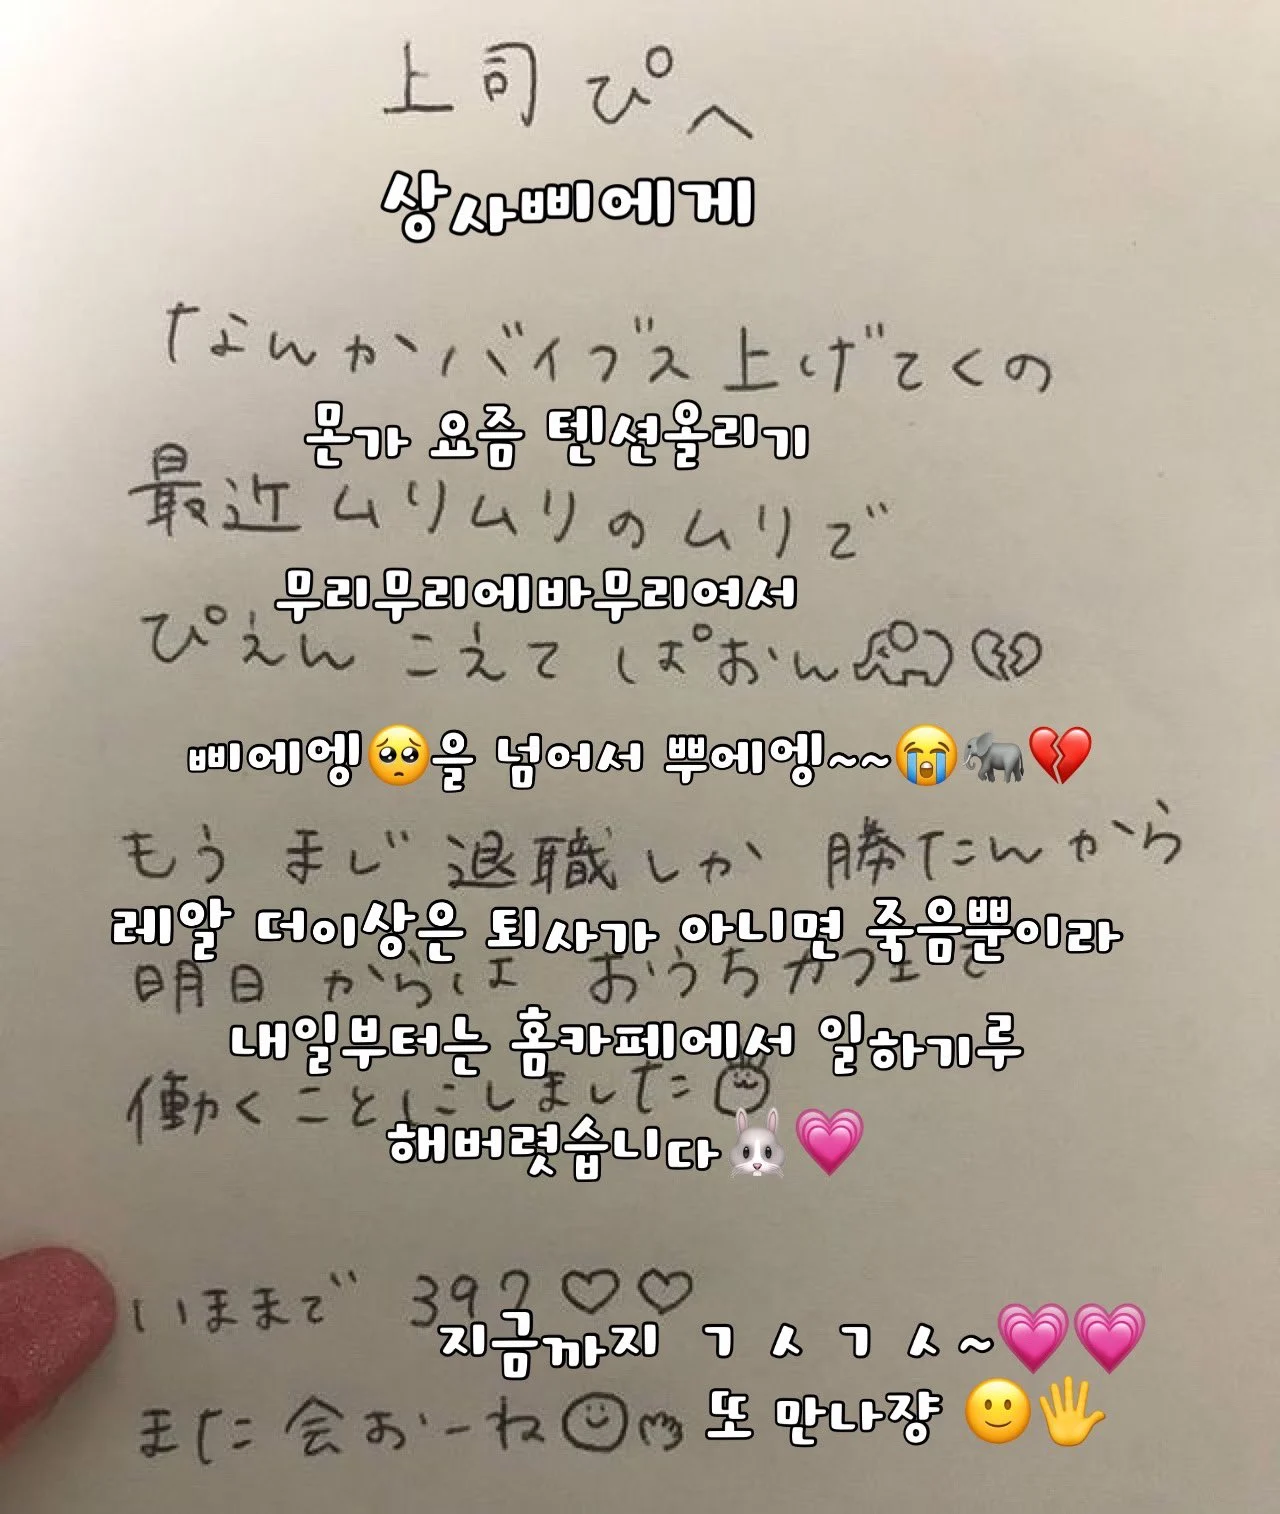 上司ぴへ
상사삐에게
なんかバイブス上げてくの
몬가 요즘 텐션올리기
最近ムリムリのムリで
무리무리에바무리여서
ぴえんこえてぱおん🐘💔
삐에엥🥺을 넘어서 뿌에엥~~😭🐘💔
もうまじ退職しか勝たんから
레알 더이상은 퇴사가 아니면 죽음뿐이라
明日からはおうちカフェで
내일부터는 홈카페에서 일하기루
働くことにしました
해버렷습니다🐰💗
いままで 39?♡♡
지금까지 ㄱ ㅅ ㄱ ㅅ~💗💗
また会おーね
또 만나쟝 🙂🖐